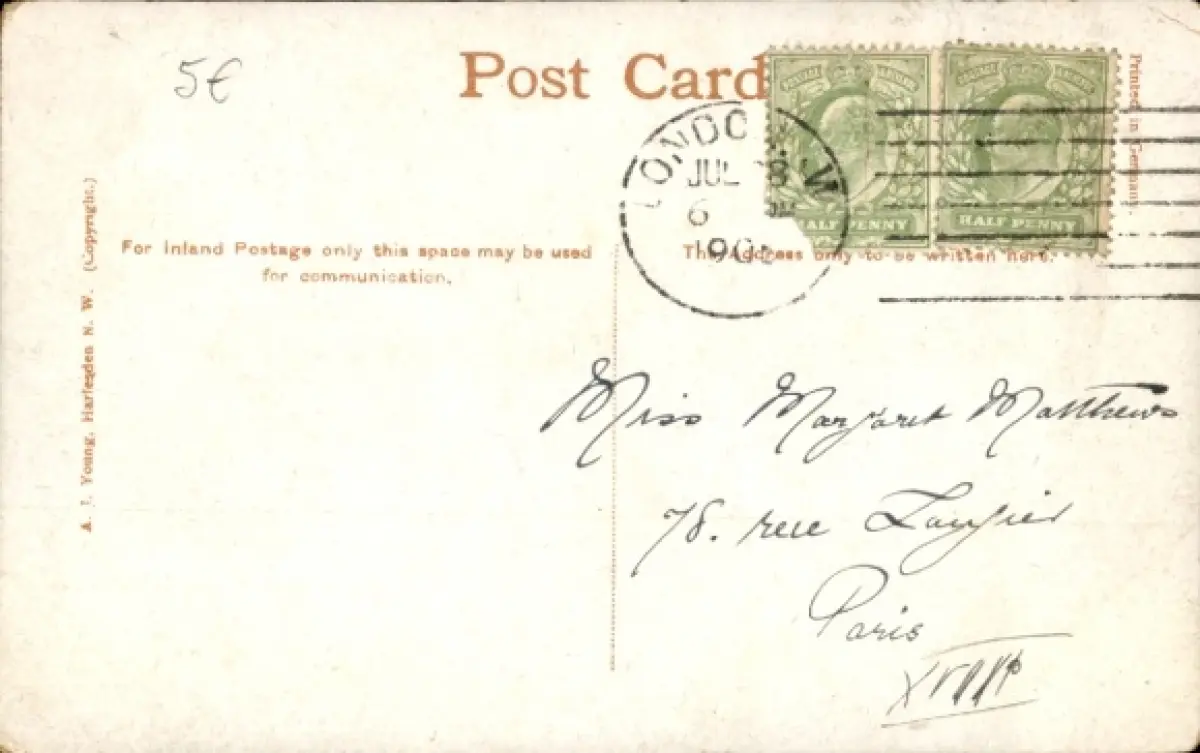 5€
Post Card
Printed in Germany.
HALF PENNY
HALF PENNY
LONDON W
JUL
6
190
For Inland Postage only this space may be used
for communication.
The Address only to be written here.
A. J. Young, Harlesden N. W. (Copyright.)
Miss Margaret Matthews
78. rue Laugier
Paris